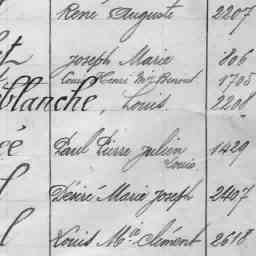 René Auguste 2207
et Joseph Marie 806
Louis Henri Mie Benoit 1705
blanche, Louis 2208
ée Paul Pierre Julien 1429
Louis
l Désiré Marie Joseph 2407
l Louis Mie Clément 2618